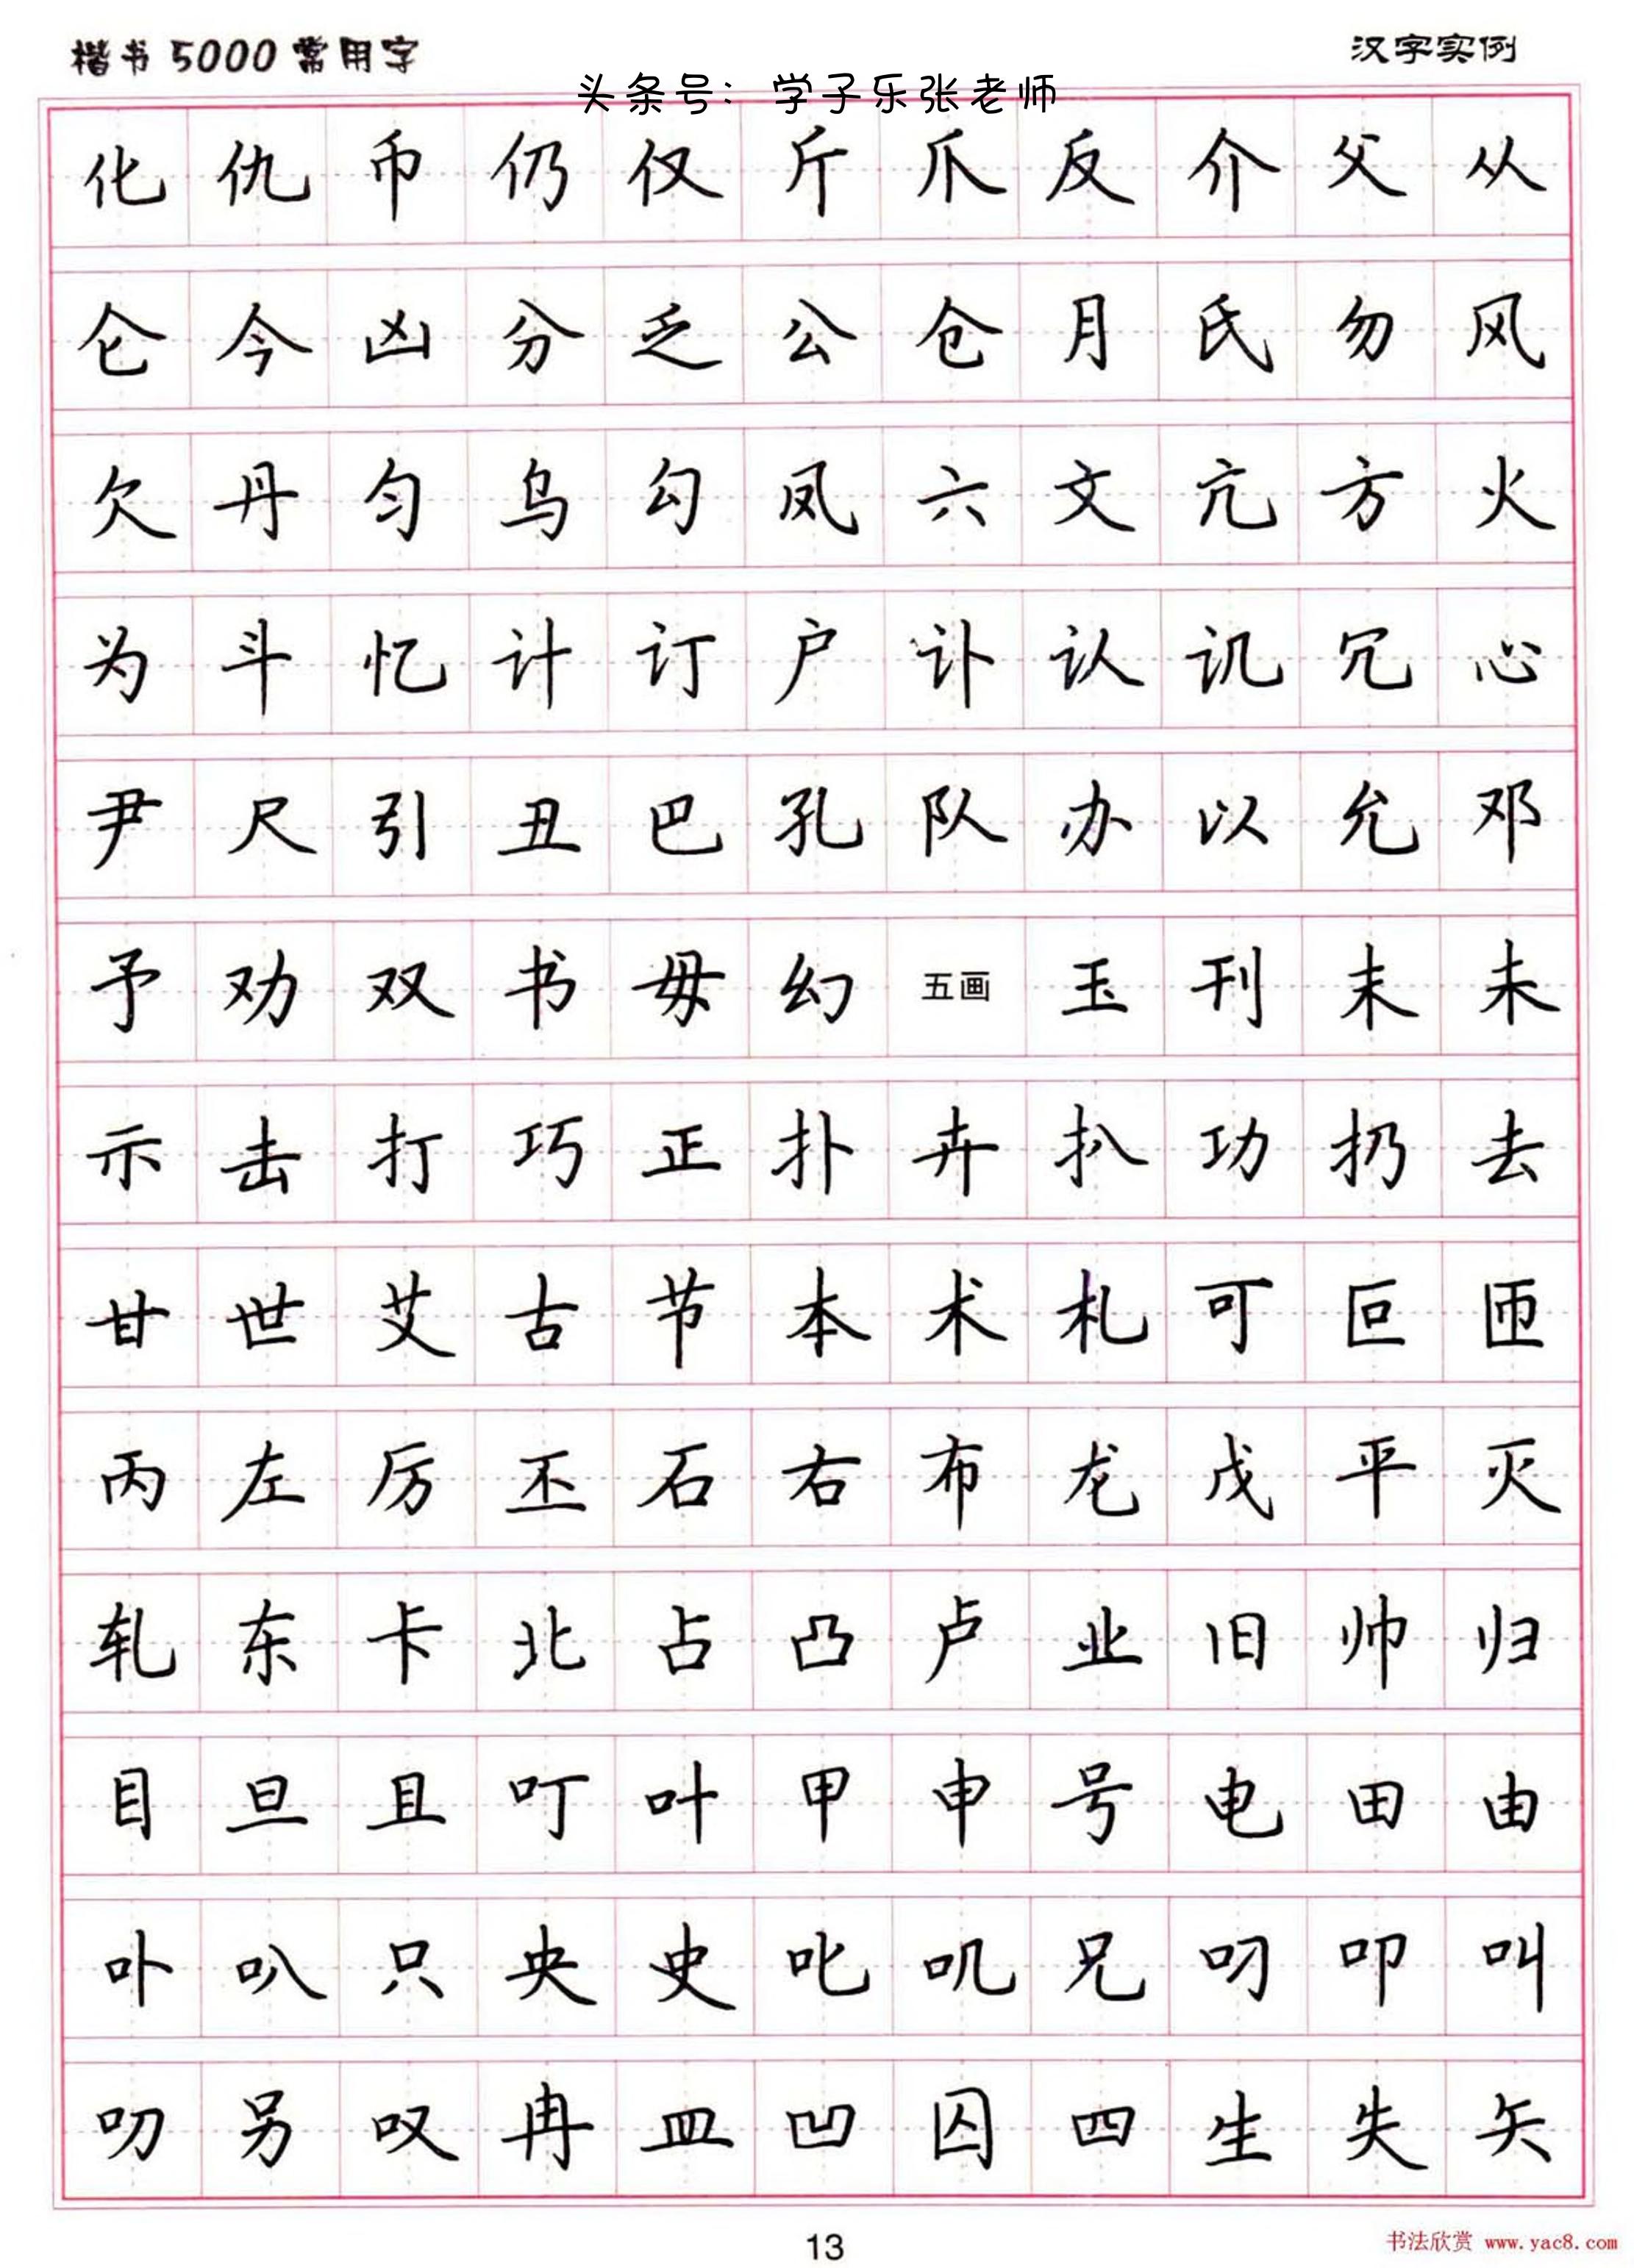 楷书5000常用字 汉字实例
头条号：学子乐张老师
化 仇 币 仍 仅 斤 爪 反 介 父 从
仑 今 凶 分 乏 公 仓 月 氏 勿 风
欠 丹 匀 乌 勾 凤 六 文 亢 方 火
为 斗 忆 计 订 户 讣 认 讥 冗 心
尹 尺 引 丑 巴 孔 队 办 以 允 邓
予 劝 双 书 毋 幻 五画 玉 刊 末 未
示 击 打 巧 正 扑 卉 扒 功 扔 去
甘 世 艾 古 节 本 术 札 可 叵 匝
丙 左 厉 丕 石 右 布 龙 戊 平 灭
轧 东 卡 北 占 凸 卢 业 旧 帅 归
目 旦 且 叮 叶 甲 申 号 电 田 由
卟 叭 只 央 史 叱 叽 兄 叼 叩 叫
叨 另 叹 冉 皿 凹 囚 四 生 失 矢
13
书法欣赏 www.yac8.com